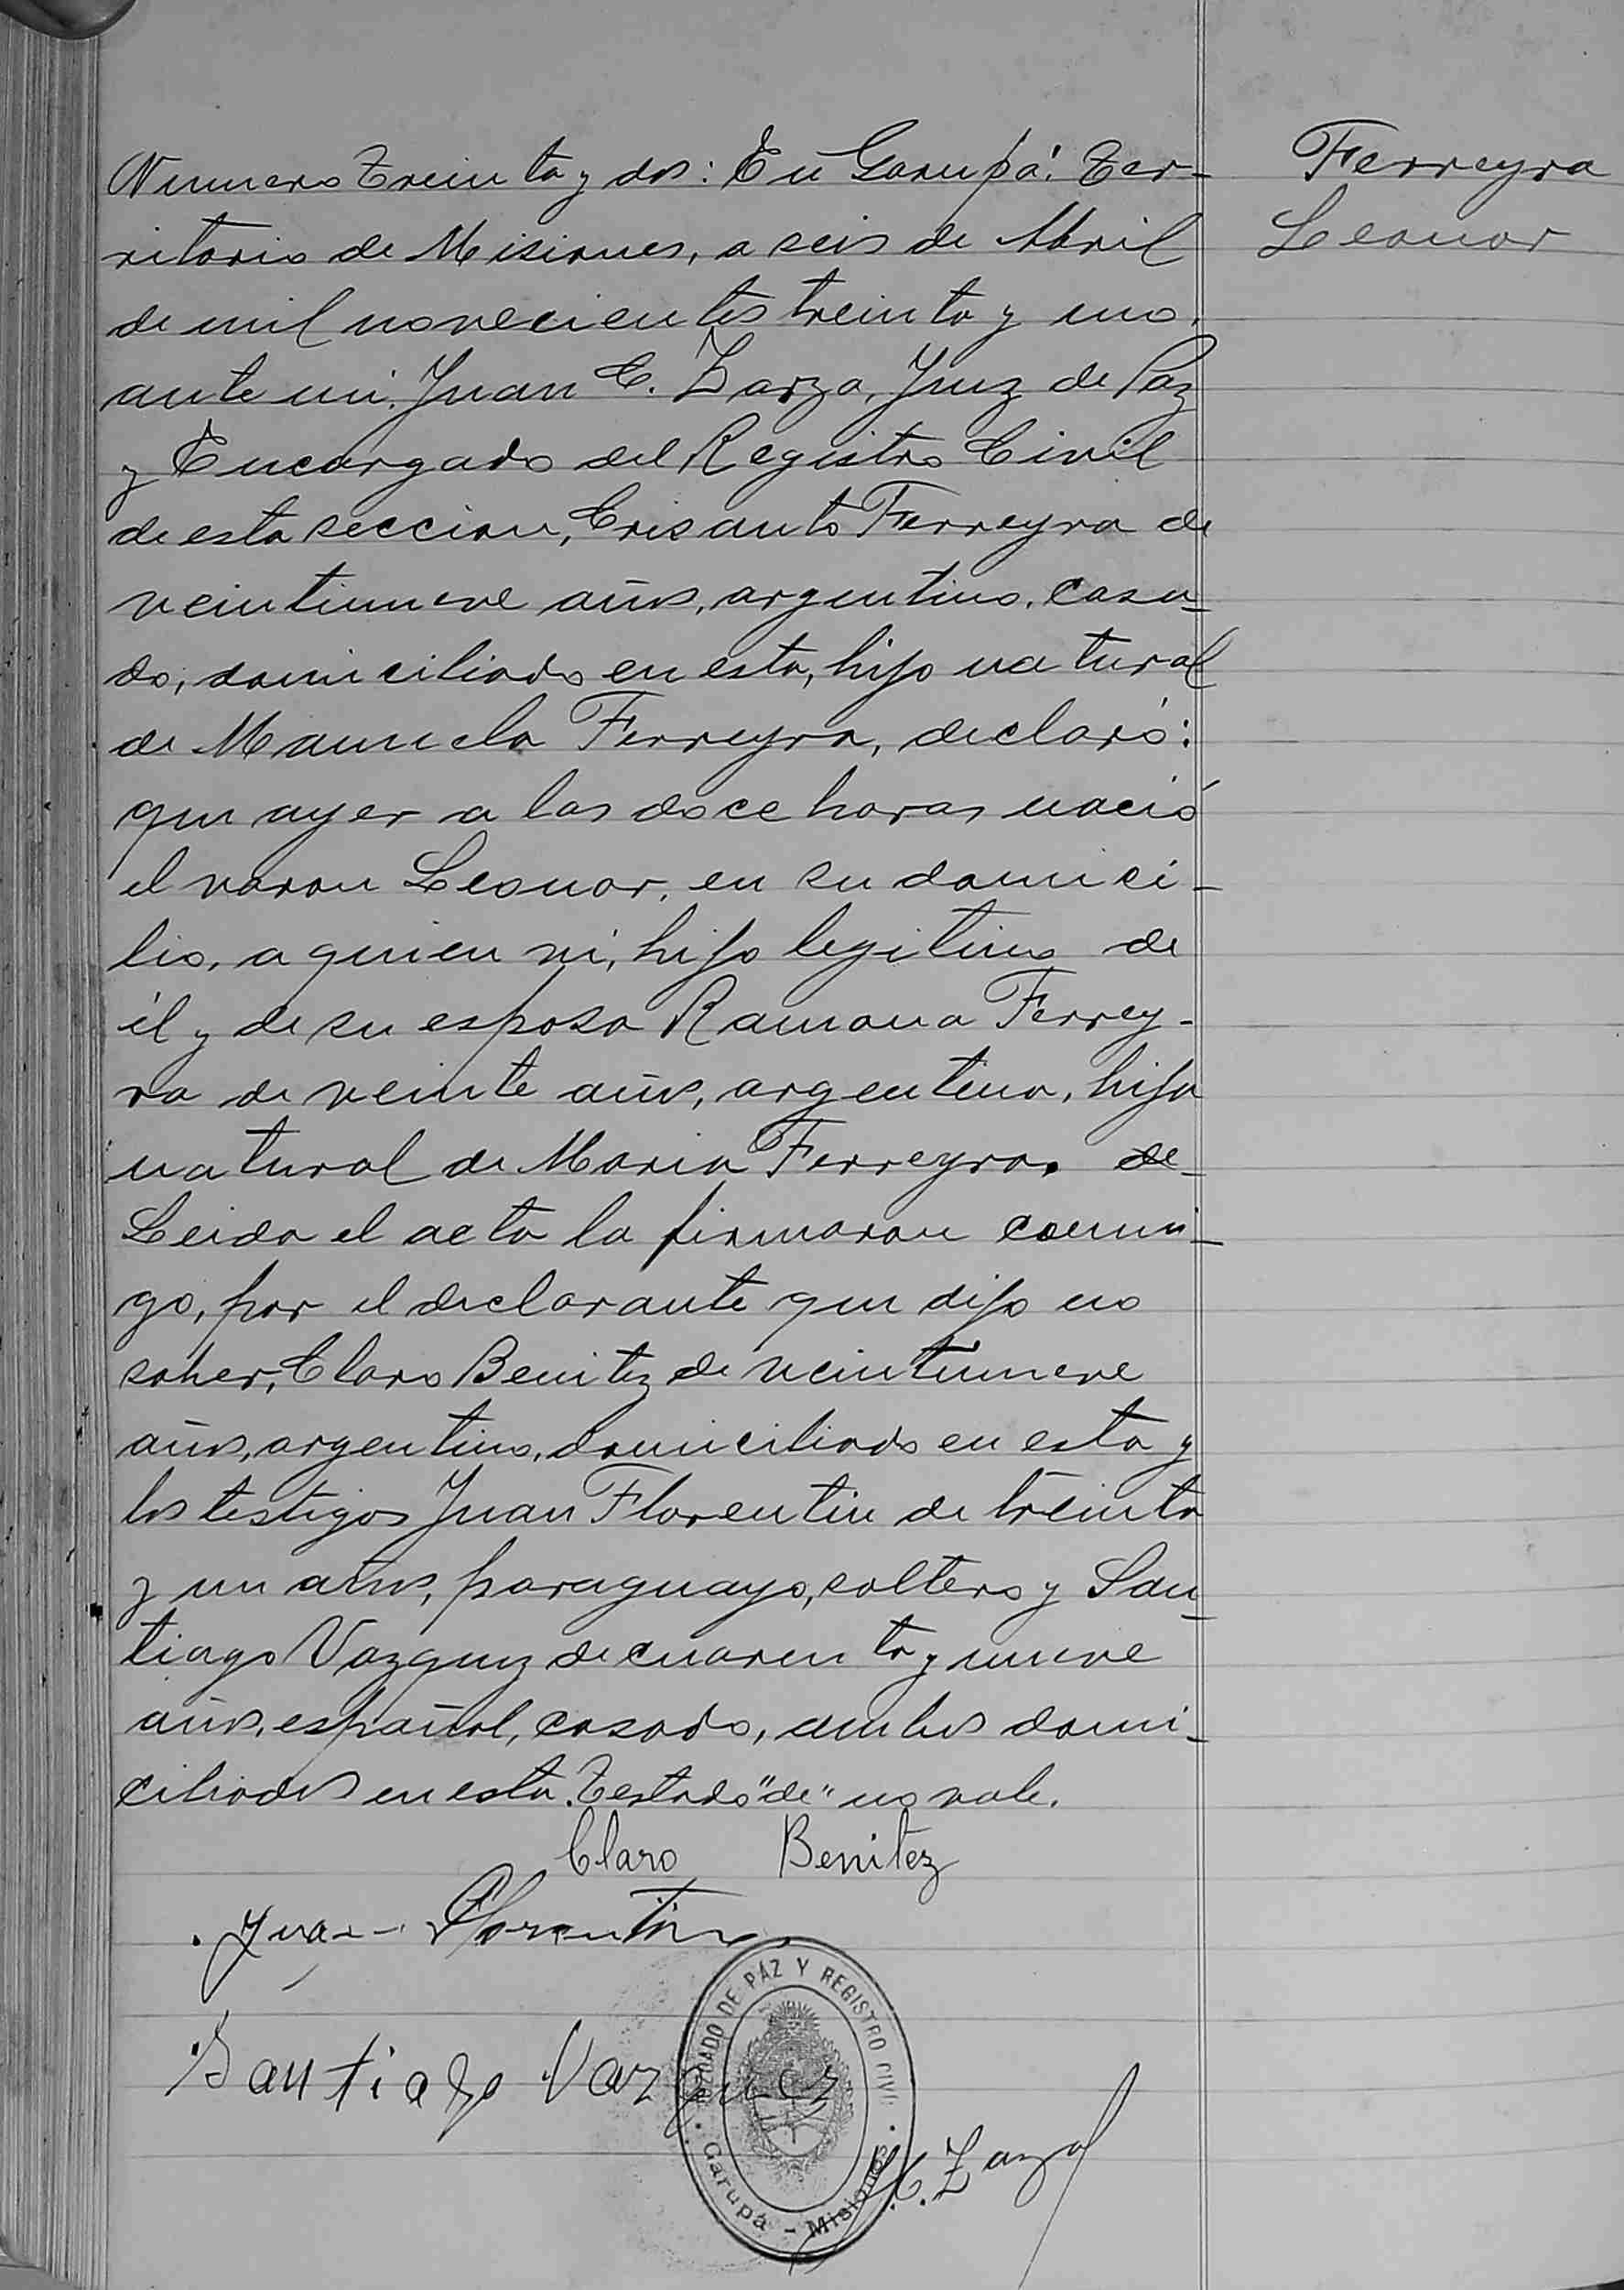 Numero Treinta y dos: En Garupá: Ter-
ritorio de Misiones, a seis de Abril
de mil novecientos treinta y uno,
ante mi, Juan C. Zarza, Juez de Paz
y Encargado del Registro Civil
de esta seccion, Crisanto Ferreyra de
veintinueve años, argentino, casa-
do, domiciliado en esta, hijo natural
de Manuela Ferreyra, declaró:
que ayer a las doce horas nació
el varon Leonor, en su domici-
lio, a quien vi, hijo legitimo de
él y de su esposa Ramona Ferrey-
ra de veinte años, argentina, hija
natural de Maria Ferreyra. de
Leida el acta la firmaron conmi-
go, por el declarante que dijo no
saber, Claro Benitez de veintinueve
años, argentino, domiciliado en esta y
los testigos Juan Florentin de treinta
y un años, paraguayo, soltero y San-
tiago Vazquez de cuarenta y nueve
años, español, casado, ambos domi-
ciliados en esta. Testado "de" no vale.
Claro Benitez
Juan Florentin
Santiago Vazquez
J. C. Zarza
JUZGADO DE PAZ Y REGISTRO CIVIL
Garupá - Misiones
Ferreyra
Leonor